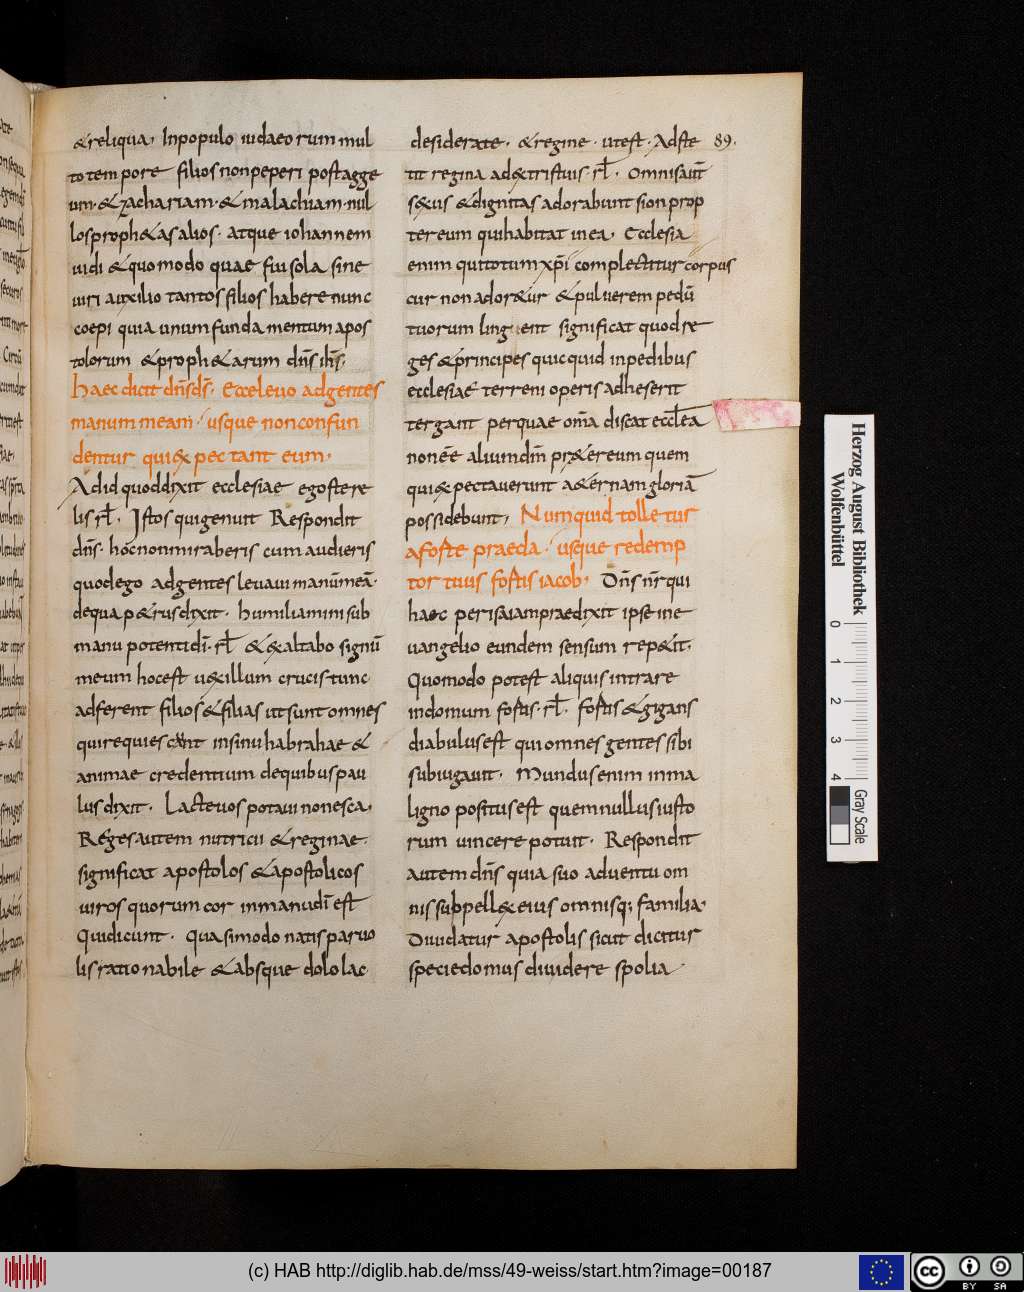 &reliqua. Inpopulo iudaeorum mul
totempore filios nonpeperi postagge
um·&zachariam·&malachiam·nul
losproph&as alios· atque iohannem
uidi &quomodo quae fui sola sine
uiri auxilio tantos filios habere nunc
coepi quia unum fundamentum apos
tolorum &proph&arum dn̄s ih̄s·
Haec dicit dn̄sds̄· Ecceleuo adgentes
manum meam· usque non confun
dentur quiexpectant eum·
Adid quoddixit ecclesiae ego stere
lis rł. Istos quigenuit Respondit
dn̄s· hoc nonmiraberis cum audieris
quodego adgentes leuaui manūmeā·
dequa p&rus dixit· humiliamini sub
manu potenti dī· rł &exaltabo signū
meum hocest uexillum crucis tunc
adferent filios &filias ut sunt omnes
quirequiescunt insinu habrahae &
animae credentium dequibus pau
lus dixit· Lacteuos potaui nonesca.
Reges autem nutricii &reginae·
significat apostolos &apostolicos
uiros quorum cor inmanu dī est
Quidicunt· Quasimodo natis paruo
lis rationabile &absque dolo lac
desiderate· &regine· utest· Adste 89.
tit regina ad&tristuis rł. Omnisaut̄
sexus &dignitas adorabunt sion prop
ter eum quihabitat inea. Ecclesia
enim quitotum xp̄i complectitur corpus
cur non ador&ur &puluerem pedū
tuorum lingent significat quod re
ges &principes quicquid inpedibus
ecclesiae terreni operis adheserit
tergant perquae om̄a discat eccl̄ea
non ēē alium dm̄ pr&ereum quem
quiexpectauerunt a&ernam gloriā
possidebunt. Numquid tolletur
aforte praeda· usque redemp
tor tuus fortis iacob. Dn̄s nr̄ qui
haec perisaiam praedixit ipse ine
uangelio eundem sensum rep&it.
Quomodo potest aliquis intrare
indomum fortis· rł. fortis &gigans
diabulus est qui omnes gentes sibi
subiugauit· Mundus enim inma
ligno positus est quem nullus iusto
rum uincere potuit· Respondit
autem dn̄s quia suo aduentu om
nis subpellex eius omnisq; familia.
Diuidatur apostolis sicut dicitur
specie domus diuidere spolia·
Herzog August Bibliothek
Wolfenbüttel
0 1 2 3 4
Gray Scale
(c) HAB http://diglib.hab.de/mss/49-weiss/start.htm?image=00187
cc BY SA